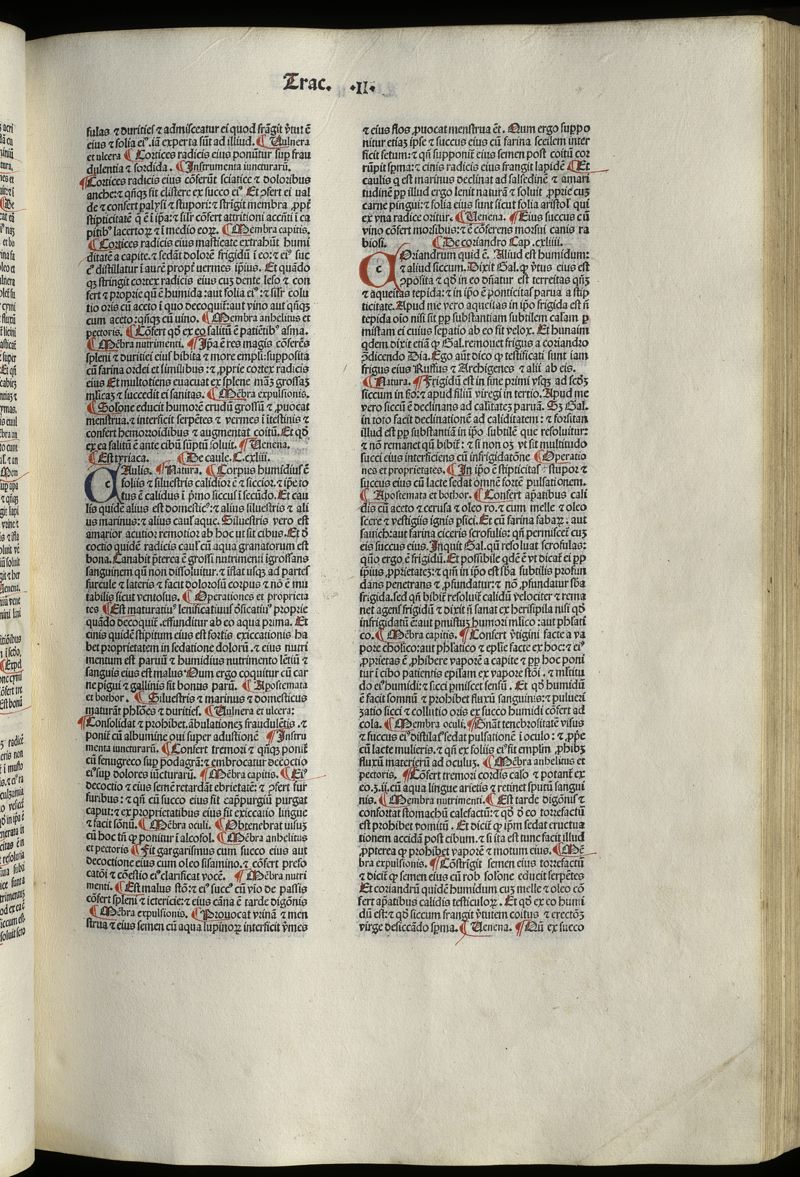 Trac. ·II·
sulas ⁊ durities ⁊ admisceatur ei quod frãgit ṽtutẽ
eius ⁊ folia eiꝰ. iã experta sũt ad illud. ¶ Vulnera
et ulcera ¶ Cortices radicis eius ponũtur suꝑ frau
dulentia ⁊ sordida. ¶ Instrumenta iuncturarũ.
¶ Cortices radicis eius cõferũt sciatice ⁊ doloribus
anche: ⁊ qñqꝫ fit clistere ex succo eiꝰ Et ↄfert ei val
de ⁊ confert palysi ⁊ stupori: ⁊ strigit membra ꝓpt̃
stipticitatẽ q̃ ẽ i ip̃a: ⁊ sil'r cõfert attritioni accñti i ca
pitibꝰ lacertoꝝ ⁊ i medio eoꝝ. ¶ Membra capitis.
¶ Cortices radicis eius masticate extrahũt humi
ditatẽ a capite. ⁊ sedãt dolorẽ frigidũ i eo: ⁊ eiꝰ suc
cꝰ distillatur i aurẽ propt̃ uermes ip̃ius. Et quãdo
qꝫ stringit cortex radicis eius cuꝫ dente leso ⁊ con
fert ⁊ proprie qũ ẽ humida: aut folia eiꝰ: ⁊ sil'r colu
tio oris cũ aceto i quo decoquiĩ: aut vino aut qñqꝫ
cum aceto: qñqꝫ cũ uino. ¶ Membra anhelitus et
pectoris. ¶ Cõfert qđ ex eo salitũ ẽ patiẽtibꝰ asma.
¶ Mẽbra nutrimenti. ¶ Ip̃a ẽ res magis cõferẽs
spleni ⁊ duritiei eius bibita ⁊ more empl'i: supposita
cũ farina ordei et similibus: ⁊ ꝓprie cortex radicis
eius Et multotiens euacuat ex splene mãꝫ grossaꝫ
ml'icaꝫ ⁊ succedit ei sanitas. ¶ Mẽbra expulsionis.
¶ Solone educit humorẽ crudũ grossũ ⁊ ꝓuocat
menstrua. ⁊ interficit serpẽtes ⁊ vermes i itestinis ⁊
confert hemorroidibus ⁊ augmentat coitũ. Et qđ
ex ea salitũ ẽ ante cibũ sũptũ soluit. ¶ Venena.
¶ Est tyriaca. ¶ De caule. C. cxliii.
CAulis. ¶ Natura. ¶ Corpus humidiꝰ ẽ
foliis ⁊ siluestris calidior ẽ ⁊ siccior. ⁊ ip̃e to
tus ẽ calidus i p̃mo siccus i secũdo. Et cau
lis quidẽ alius est domesticꝰ: ⁊ alius siluestris ⁊ ali
us marinus: ⁊ alius caulʼ aque. Siluestris vero est
amarior acutior: remotior: ab hoc ut sit cibus. Et đ
coctio quidẽ radicis caulʼ cũ aqua granatorum est
bona. Canabit p̃terea ẽ grossi nutrimenti igrossans
sanguinem qũ non dissoluitur. ⁊ istat usqꝫ ad partes
furcule ⁊ lateris ⁊ facit dolorosũ corpus ⁊ nõ ẽ mu
tabilis sicut ventosus. ¶ Operationes et proprieta
tes ¶ Est maturatiuꝰ lenificatiuus đsiccatiuꝰ proprie
quãdo decoquiĩ. effunditur ab eo aqua prima. Et
cinis quidẽ stipitum eius est fortis exiccationis ha
bet proprietatem in sedatione dolorũ. ⁊ eius nutri
mentum est paruũ ⁊ humidius nutrimento lẽtiũ ⁊
sanguis eius est malus Num ergo coquitur cũ car
ne pigui ⁊ gallinis fit bonus parũ. ¶ Apostemata
et bothor. ¶ Siluestris ⁊ marinus ⁊ domesticus
maturãt phlõcẽs ⁊ durities. ¶ Vulnera et ulcera:
¶ Consolidat ⁊ prohibet. ãbulationẽs fraudulẽtis. ⁊
poniĩ cũ albumine oui super adustionẽ ¶ Instru
menta iuncturarũ. ¶ Confert tremori ⁊ qñqꝫ poniĩ
cũ fenugreco sup podagrã: ⁊ embrocatur decoctio
eiꝰ suꝑ dolores iũcturarũ. ¶ Mẽbra capitis. ¶ Eiꝰ
decoctio ⁊ eius semẽ retardãt ebrietatẽ: ⁊ ↄfert fur
furibus: ⁊ qñ cũ succo eius fit capp̃urgiũ purgat
caput: ⁊ ex proprietatibus eius est exiccatio lingue
⁊ facit sõnũ. ¶ Mẽbra oculi. ¶ Obtenebrat uisuꝫ
cũ hoc tñ ꝙ ponitur i alcosol. ¶ Mẽbra anhelitus
et pectoris ¶ Fit gargarismus cum succo eius aut
decoctione eius cum oleo sisamino. ⁊ cõfert prefo
catõi ⁊ cõestio eiꝰ clarificat vocẽ. ¶ Mẽbra nutri
menti. ¶ Est malus stõ: ⁊ eiꝰ succꝰ cũ vio de passis
cõfert spleni ⁊ ictericie: ⁊ eius cãna ẽ tarde digõnis
¶ Mẽbra expulsionis. ¶ Prouocat vrinã ⁊ men
strua ⁊ eius semen cũ aqua lupinoꝝ interficit ṽmes
⁊ eius flos ꝓuocat menstrua ẽt. Num ergo suppo
nitur etiaꝫ ip̃e ⁊ succus eius cũ farina sceilem inter
ficit fetum: ⁊ qñ supponiĩ eius semen post coitũ cor
rũpit spma: ⁊ cinis radicis eius frangit lapidẽ ¶ Et
caulis q̃ est marinus declinat ad salsedinẽ ⁊ amari
tudinẽ ꝓꝑ illud ergo lenit naturã ⁊ soluit ꝓprie cuꝫ
carne pingui: ⁊ folia eius sunt sicut folia aristol' qui
ex vna radice oritur. ¶ Venena. ¶ Eius succus cũ
vino cõfert morsibus: ⁊ ẽ cõferens morsui canis ra
biosi. ¶ De coriandro Cap. cxliiii.
COriandrum quid ẽ. Aliud est humidum:
⁊ aliud siccum. Dixit Gal. ꝙ ṽtus eius est
ↄposita ⁊ qđ in eo dñatur est terreitas qñꝫ
⁊ aqueitas tepida: ⁊ in ip̃o ẽ ponticitas parua a stip
ticitate. Apud me vero aqueitas in ip̃o frigida est ñ
tepida oĩo nisi sit ꝓꝑ substantiam subtilem casam ꝑ
mistam ei cuius sepatio ab eo fit velox. Et hunaim
q̃dem dixit etiã ꝙ Gal. remouet frigus a coriandro
ↄ̃dicendo Dia. Ego aũt dico ꝙ testificati sunt iam
frigus eius Ruffus ⁊ Archigenes ⁊ alii ab eis.
¶ Natura. ¶ Frigidũ est in fine primi vsqꝫ ad scđꝫ
siccum in scđo: ⁊ apud filiũ viregi in tertio. Apud me
vero siccũ ẽ declinans ad caliditateꝫ paruã. Sꝫ Gal.
in toto facit declinationẽ ad caliditatem: ⁊ forsitan
illud est ꝓꝑ substãtiã in ip̃o subtilẽ que resoluitur:
⁊ nõ remanet qũ bibiĩ: ⁊ si non oꝫ ṽt sit multitudo
succi eius interficiens cũ infrigidatõne ¶ Operatio
nes et proprietates. ¶ In ip̃o ẽ stipticitasʼ ⁊ stupor ⁊
succus eius cũ lacte sedat omnẽ fortẽ pulsationem.
¶ Apostemata et bothor. ¶ Confert apatibus cali
dis cũ aceto ⁊ cerusa ⁊ oleo ro. ⁊ cum melle ⁊ oleo
secere ⁊ vestigiis ignis psici. Et cũ farina fabaꝝ. aut
sauich: aut farina ciceris scrofulis: qñ permisceĩ cuꝫ
eis succus eius. Inquit Gal. qũ resoluat scrofulas:
quõ ergo ẽ frigidũ. Et possibile qđẽ ẽ ṽt dicat et ꝓꝑ
ip̃ius ꝓprietateꝫ: ⁊ qm̃ in ip̃o est sb̃a subtilis profun
dans penetrans ⁊ ꝓfundatur: ⁊ nõ ꝓfundatur sb̃a
frigida. sed qñ bibiĩ resoluiĩ calidũ velociter ⁊ rema
net agens frigidũ ⁊ dixit ꝙ sanat ex herisipila nisi qđ
infrigidatũ ẽ: aut ꝓmistuꝫ humori ml'ico: aut phlʼati
co. ¶ Mẽbra capitis. ¶ Confert v̾tigini facte a va
pore cholʼico: aut phl'atico ⁊ epl'ie facte ex hoc: ⁊ eiꝰ
ꝓprietas ẽ ꝓhibere vaporẽ a capite ⁊ ꝓꝑ hoc poni
tur i cibo patientis epilam ex vapore stõi. ⁊ ml'titu
do eiꝰ humidi ⁊ sicci ꝓmiscet sensũ. Et qđ humidũ
ẽ facit somnũ ⁊ prohibet fluxũ sanguinis: ⁊ pulueri
ʒatio sicci ⁊ collutio oris ex succo humidi cõfert ad
cola. ¶ Membra oculi. ¶ Gñat tenebrositatẽ visus
⁊ succus eiꝰ distillatʼ sedat pulsationẽ i oculo: ⁊ ꝓꝑie
cũ lacte mulieris. ⁊ qñ ex foliis eiꝰ fit emplm̃ ꝓhibꝫ
fluxũ materierũ ad oculuꝫ. ¶ Mẽbra anhelitus et
pectoris. ¶ Cõfert tremori cordis calʼo ⁊ potant ex
eo.ʒ.ii. cũ aqua lingue arietis ⁊ retinet sputũ sangui
nis. ¶ Membra nutrimenti. ¶ Est tarde digõnis ⁊
confortat stomachũ calefactũ: ⁊ qđ đ eo torrefactũ
est prohibet vomitũ. Et diciĩ ꝙ ip̃m sedat eructua
tionem accidẽ post cibum. ⁊ si ita est tunc facit illud
ꝓpterea ꝙ prohibet vaporẽ ⁊ motum eius. ¶ Mẽ
bra expulsionis. ¶ Cõstrigit semen eius torrefactũ
⁊ diciĩ ꝙ semen eius cũ rob solone educit serpẽtes
Et coriandrũ quidẽ humidum cuꝫ melle ⁊ oleo cõ
fert apatibus calidis testiculoꝝ. Et qđ ex eo humi
dũ est: ⁊ qđ siccum frangit ṽtutem coitus ⁊ erectõꝫ
virge desiccãdo spma. ¶ Venena. ¶ Nũ ex succo